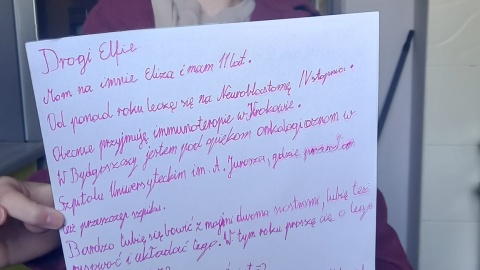 Drogi Elfie
Mam na imnie Eliza i mam 11 lat.
Od ponad roku leczę się na Neuroblastomę IV stopnia.
Obecnie przyjmuję immunoterapie w Krakowie.
W Bydgoszczy jestem pod opiekom onkologicznom w
Szpitalu Uniwersyteckim im. A. Jurasza, gdzie
też przeszczep szpiku.
Bardzo lubię się bawić z mojmi dwoma siostrami, lubię też
rysować i układać lego. W tym roku proszę cię o lego